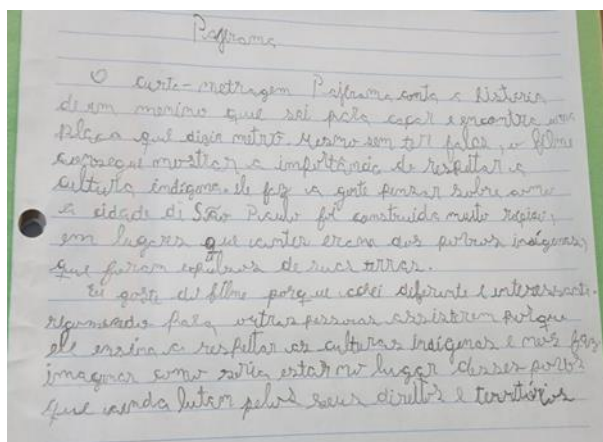 Pajerama
O curta-metragem Pajerama conta a historia
de um menino que sai para caçar e encontra uma
placa que dizia metrô. Mesmo sem ter falas, o filme
consegue mostrar a importância de respeitar a
cultura indígena. ele faz a gente pensar sobre como
a cidade de São Paulo foi construida muito rapido,
em lugares que antes eram dos povos indígenas,
que foram expulsos de suas terras.
Eu gostei do filme porque achei diferente e interessante.
recomendo para outras pessoas assistirem porque
ele ensina a respeitar as culturas indígenas e nos faz
imaginar como seria estar no lugar desses povos
que ainda lutam pelos seus direitos e territórios